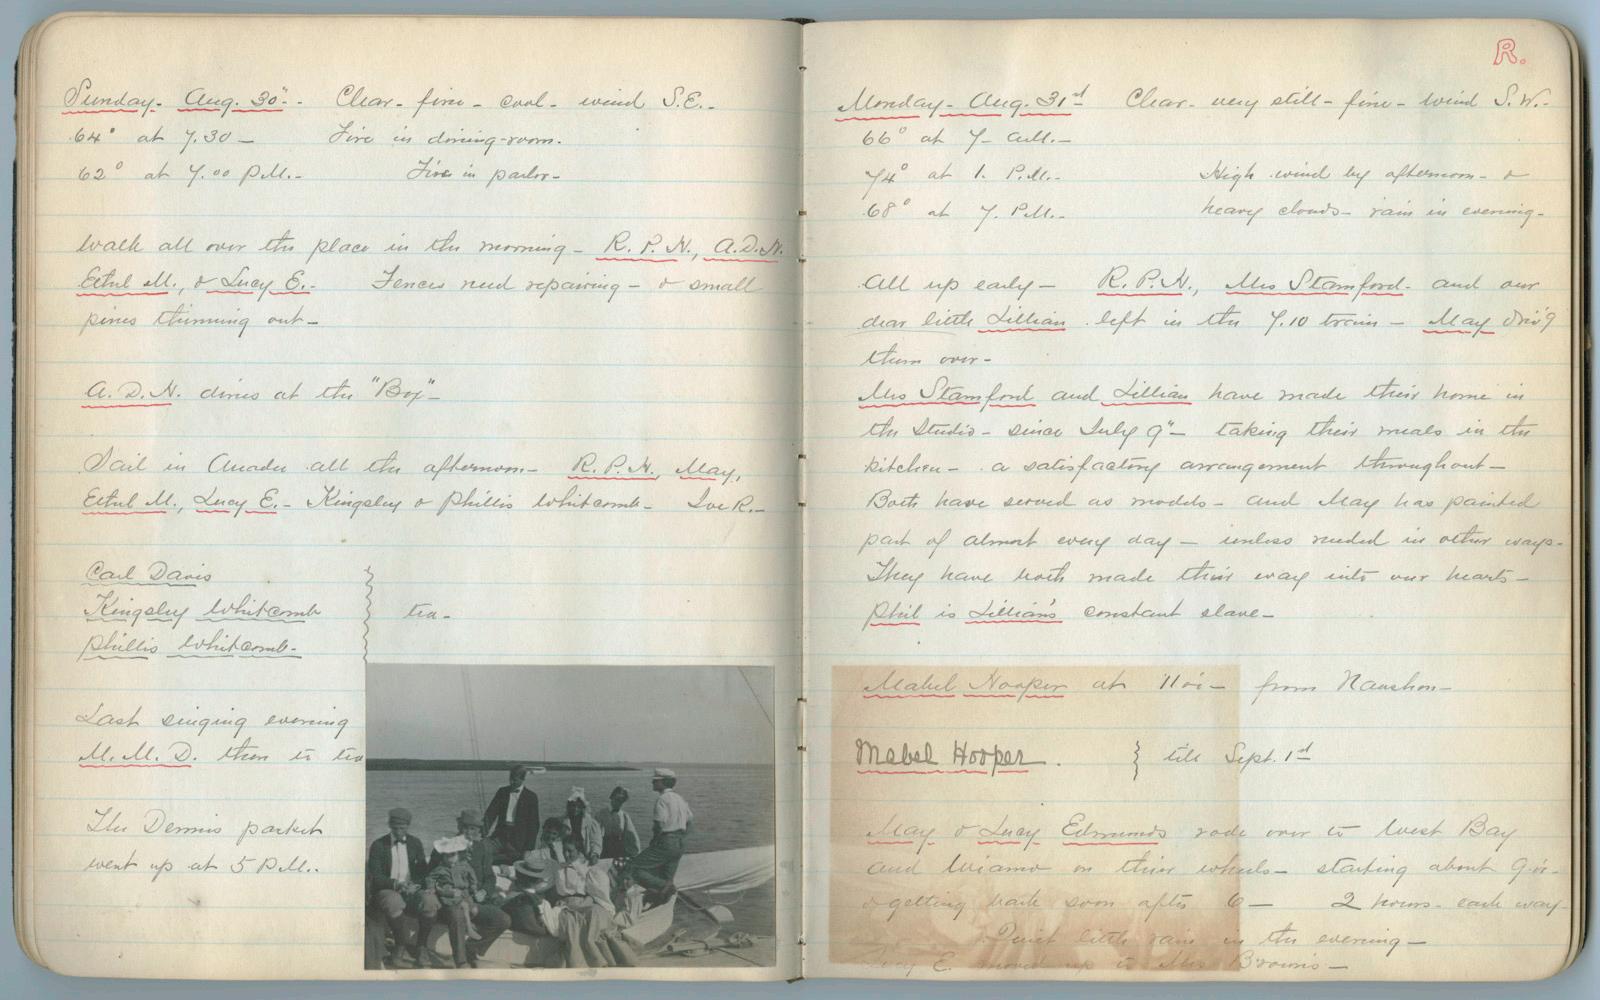 Sunday- Aug. 30"- Clear- fine- cool- wind S.E.-
64° at 7.30- Fire in dining-room.
62° at 7.00 P.M.- Fire in parlor-
Walk all over the place in the morning- R.P.N., A.D.N.
Ethel M., & Lucy E.- Fences need repairing- & small
pines thinning out-
A.D.N. dines at the "Box"-
Sail in all the afternoon- R.P.N., May,
Ethel M., Lucy E.- Kingsley & Phillis Whitcomb- Joe R.-
Carl Davis
Kingsley Whitcomb
Phillis Whitcomb-
tea-
Last singing evening
M.M.D. then to tea
The Dennis packet
went up at 5 P.M..
R.
Monday- Aug. 31st Clear- very still- fine- wind S.W.-
66° at 7- A.M.-
74° at 1. P.M.- High wind by afternoon- &
68° at 7. P.M.- heavy clouds- rain in evening-
All up early- R.P.N., Mrs Stamford- and our
dear little Lillian left in the 7.10 train- May driv'g
them over-
Mrs Stamford and Lillian have made their home in
the Studio- since July 9"- taking their meals in the
kitchen- a satisfactory arrangement throughout-
Both have served as models- and May has painted
part of almost every day- unless needed in other ways-
They have both made their way into our hearts-
Phil is Lillian's constant slave-
Mabel Hooper at 11 from Naushon-
Mabel Hooper. till Sept. 1st
May & Lucy Edmunds rode over to West Bay
and Wianno on their wheels- starting about 9
& getting back soon after 6- 2 hours- each way-
Quiet little rain in the evening-
Lucy E. moved up to Mrs Brown's-